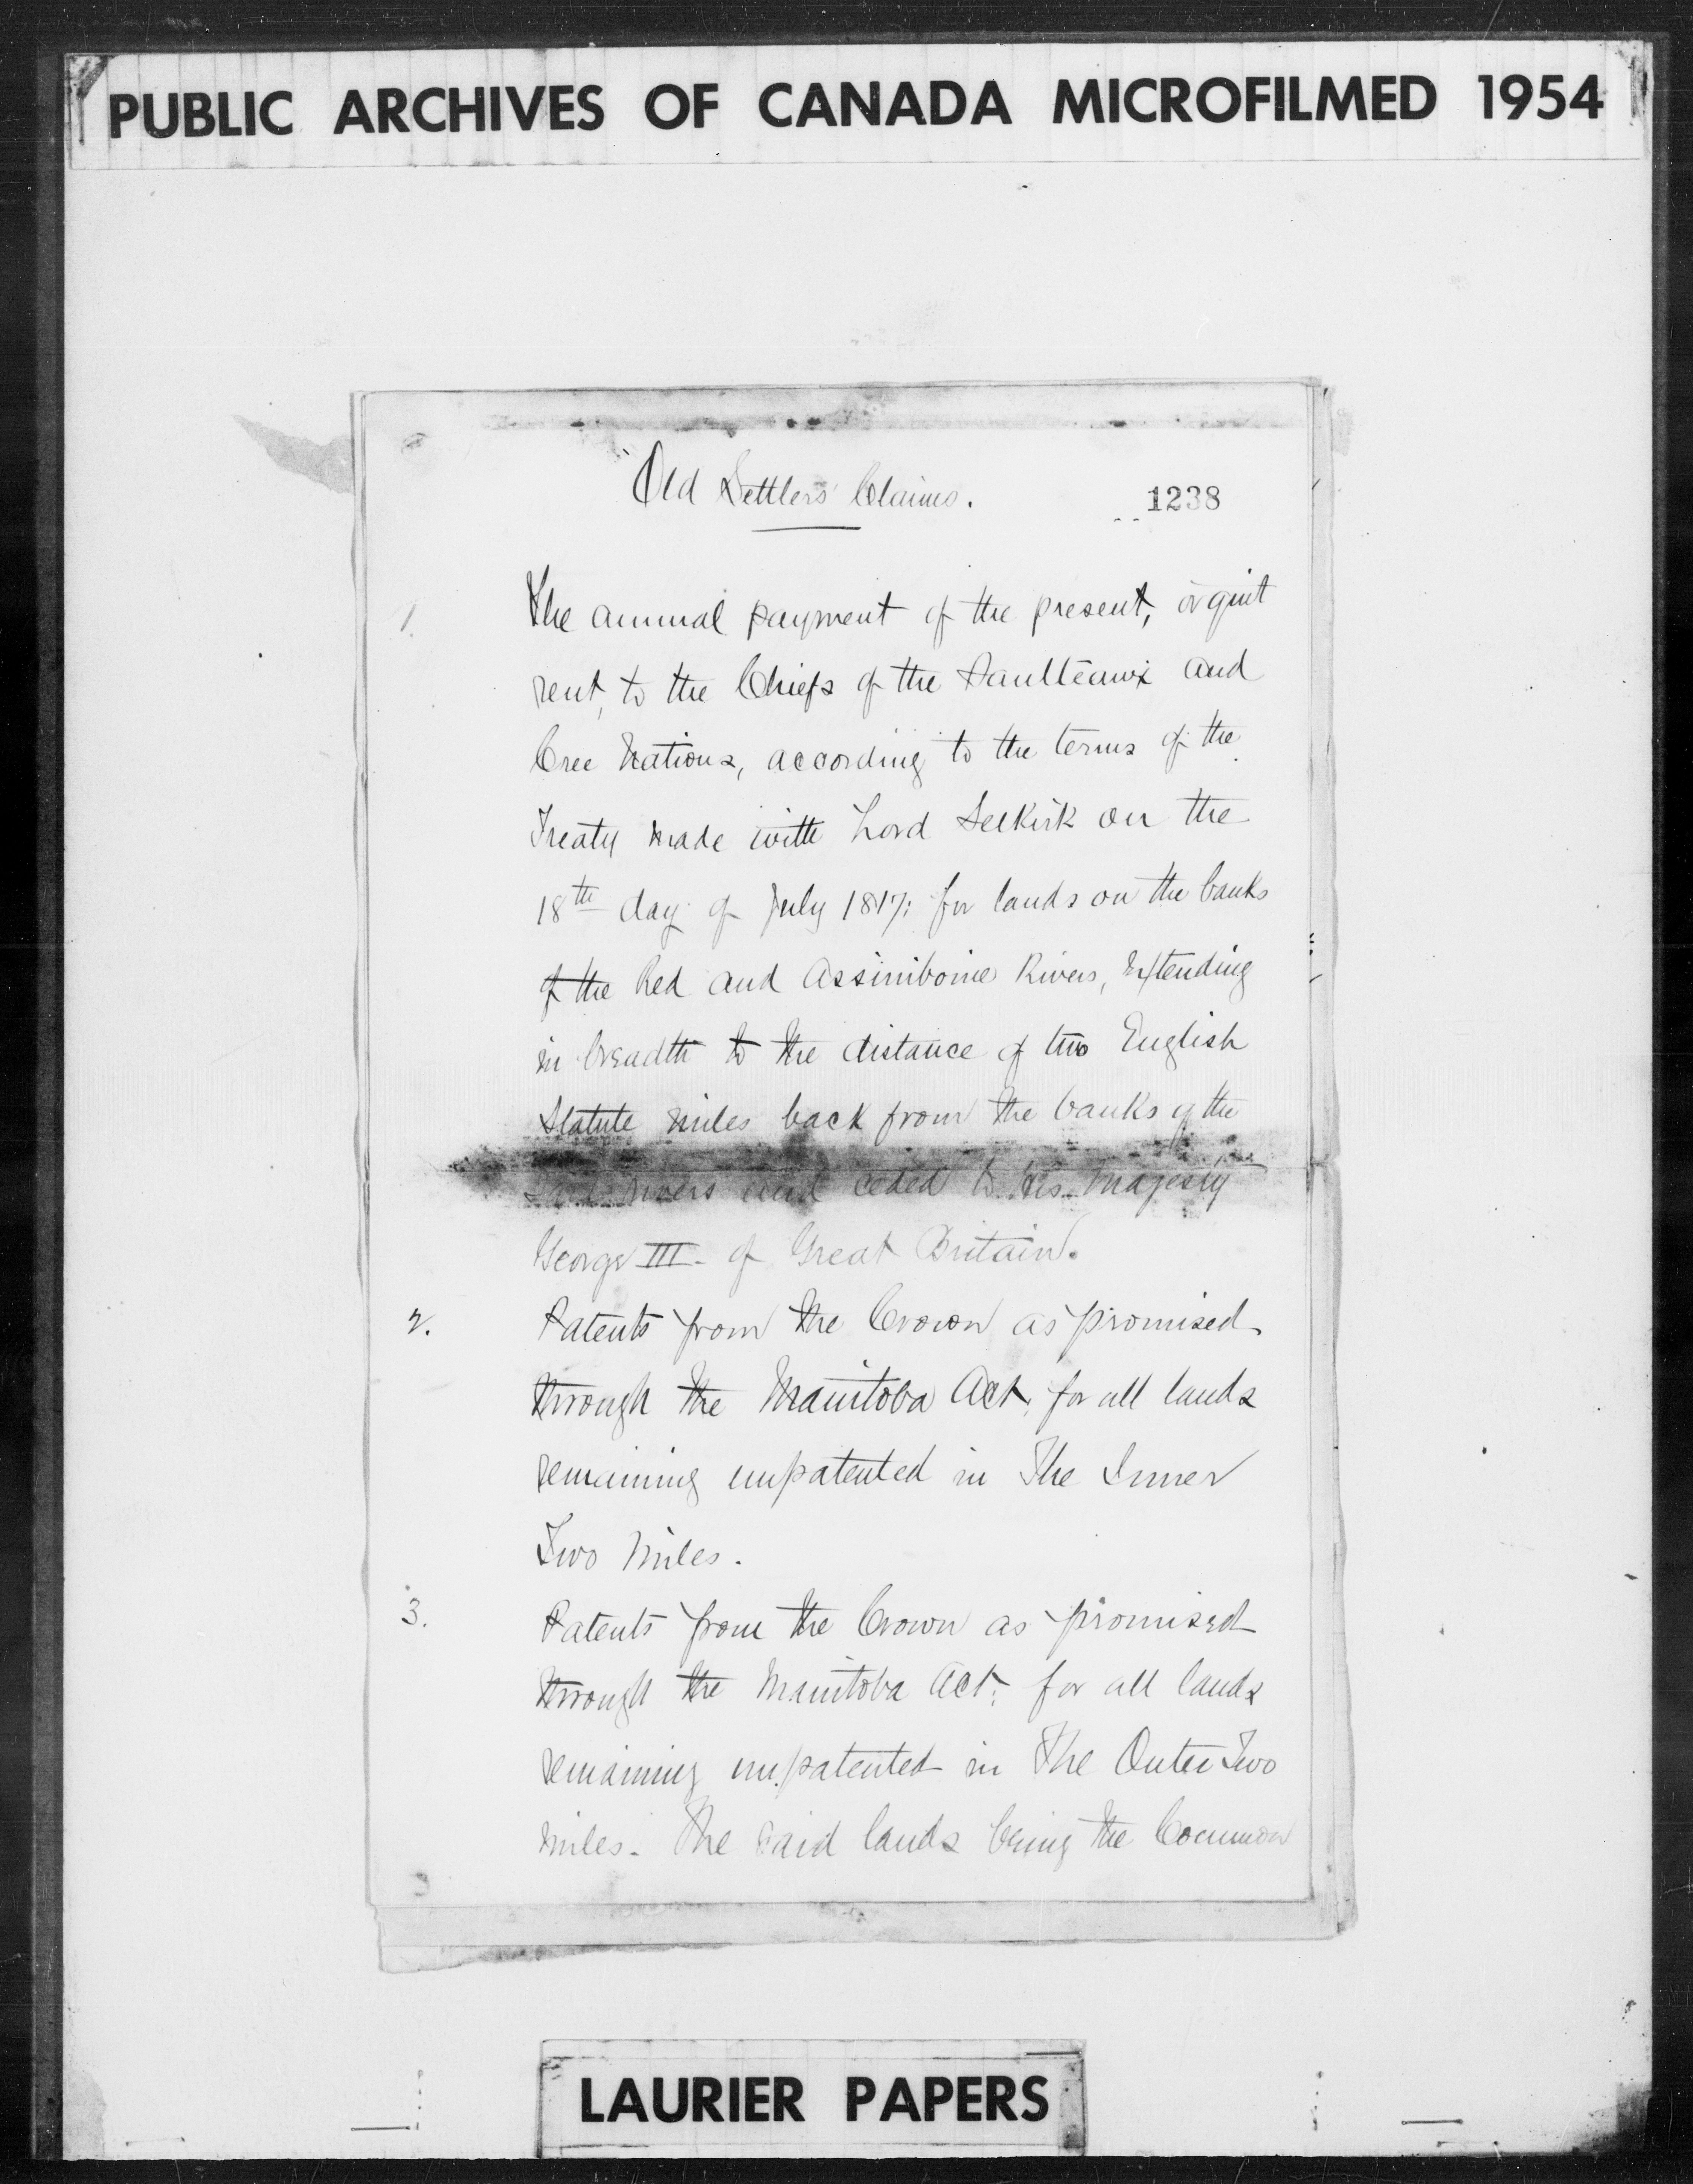 PUBLIC ARCHIVES OF CANADA MICROFILMED 1954
Old Settlers' Claims.
1238
1. The annual payment of the present, or quit
rent, to the Chiefs of the Saulteaux and
Cree Nations, according to the terms of the
Treaty made with Lord Selkirk on the
18th day of July 1817; for lands on the banks
of the Red and Assiniboine Rivers, Extending
in breadth to the distance of two English
Statute miles back from the banks of the
said rivers and ceded to His Majesty
George III of Great Britain.
2. Patents from the Crown as promised
through the Manitoba Act, for all lands
remaining unpatented in The Inner
Two Miles.
3. Patents from the Crown as promised
through the Manitoba Act; for all lands
remaining unpatented in The Outer Two
Miles. The said lands being the Common
LAURIER PAPERS